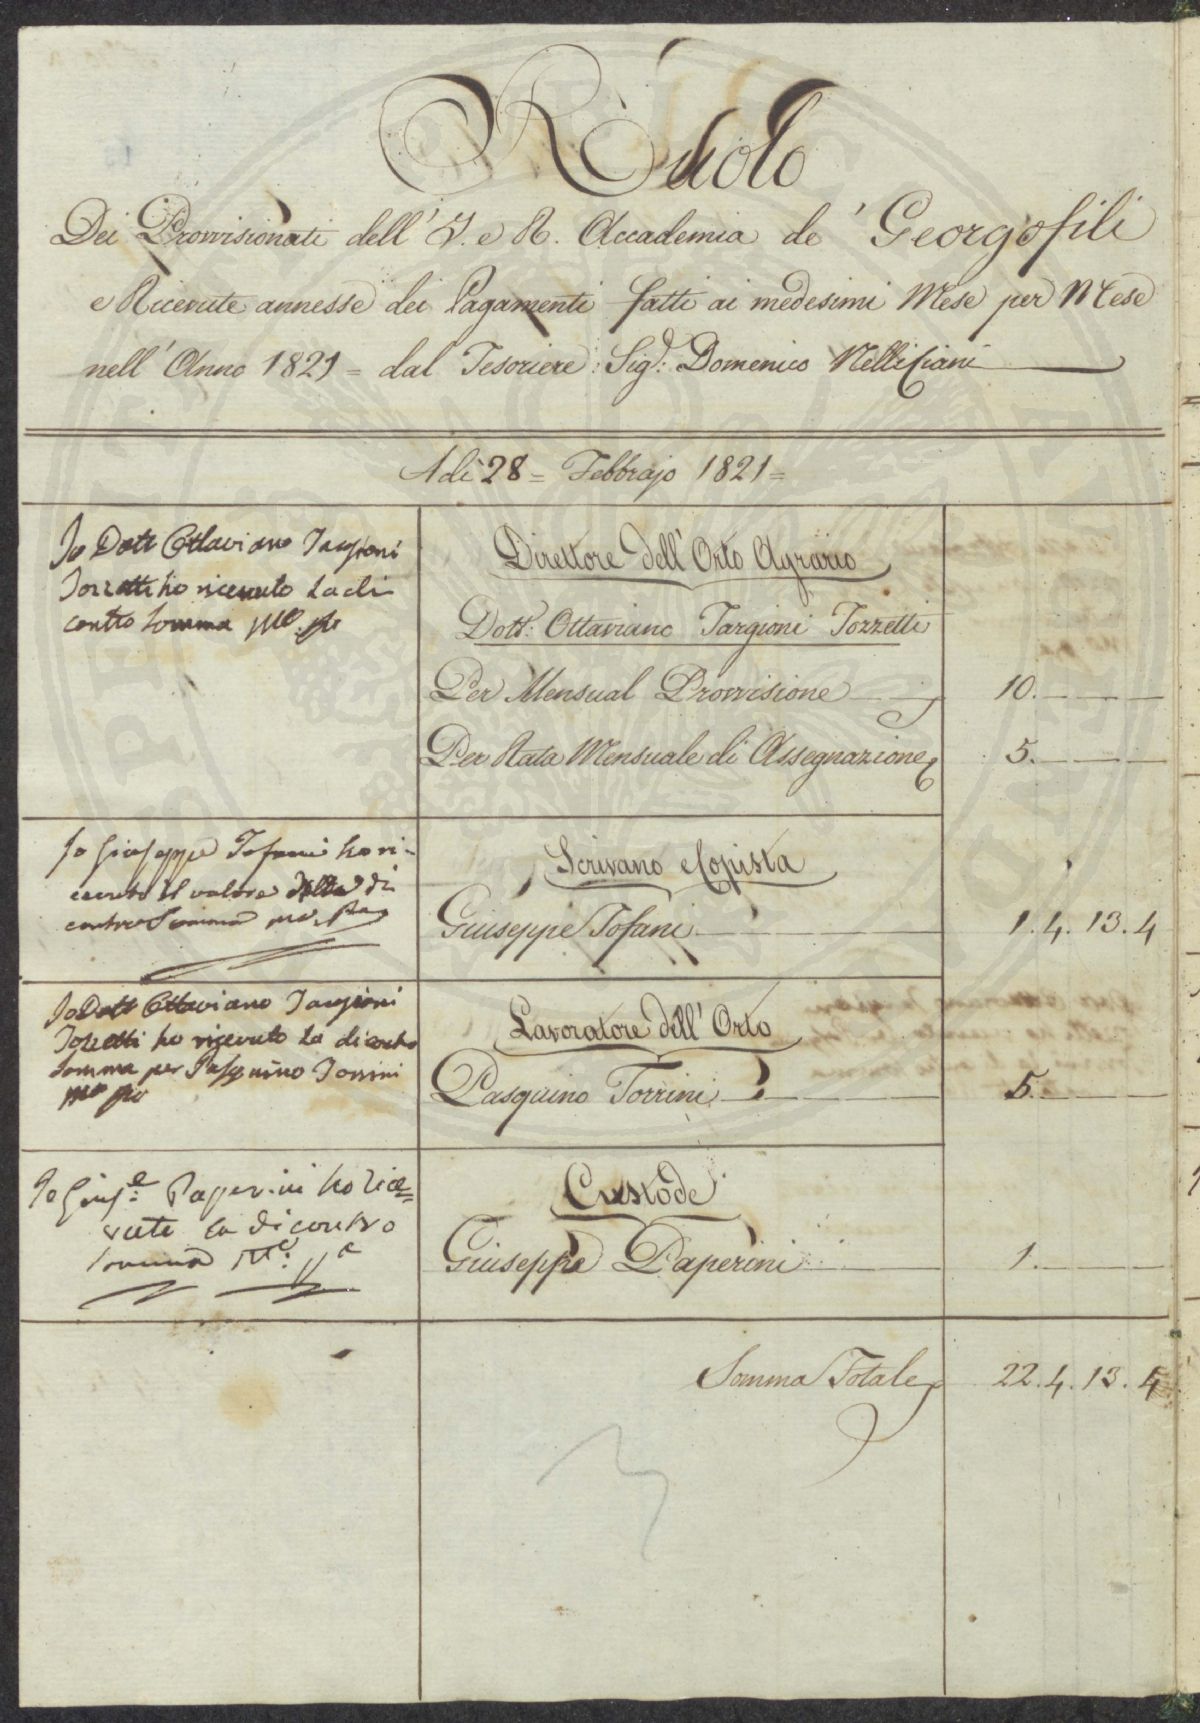 Ruolo
Dei Provvisionati dell' I. e R. Accademia de' Georgofili
e Ricevute annesse dei Pagamenti fatti ai medesimi Mese per Mese
nell' Anno 1821 = dal Tesoriere Sigr: Domenico Nelli Ciani
Adì 28 = Febbrajo 1821 =
Io Dott Ottaviano Targioni
Tozzetti ho ricevuto la di
contro somma mo. po
Direttore dell' Orto Agrario
Dott: Ottaviano Targioni Tozzetti
Per Mensual Provvisione 10.
Per Rata Mensuale di Assegnazione 5.
Io Giuseppe Tofani ho ri-
cevuto il valore della di
contro Somma
Scrivano e Copista
Giuseppe Tofani 1. 4. 13. 4
Io Dott Ottaviano Targioni
Tozzetti ho ricevuto la di contro
somma per Pasquino Torrini
mo po
Lavoratore dell' Orto
Pasquino Torrini 5.
Io Giuse: Paperini ho rice=
vuto la di contro
somma
Custode
Giuseppe Paperini 1.
Somma Totale 22. 4. 13. 4